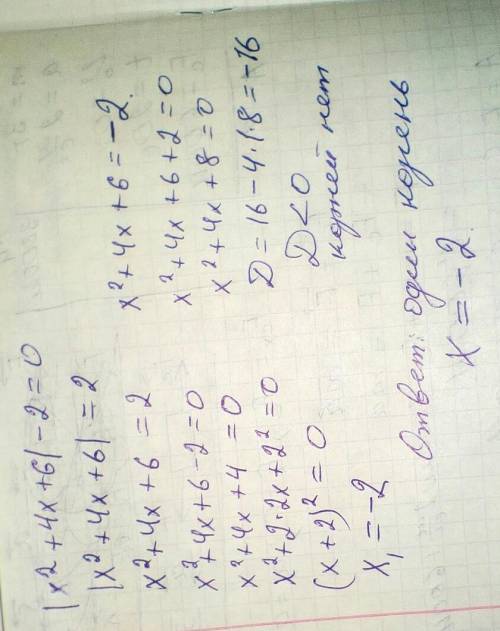 |x² + 4x + 6| - 2 = 0
|x² + 4x + 6| = 2
x² + 4x + 6 = 2
x² + 4x + 6 - 2 = 0
x² + 4x + 4 = 0
x² + 2·2x + 2² = 0
(x + 2)² = 0
x₁ = -2
x² + 4x + 6 = -2.
x² + 4x + 6 + 2 = 0
x² + 4x + 8 = 0
D = 16 - 4·1·8 = -16
D < 0
корней нет
Ответ: один корень
x = -2.